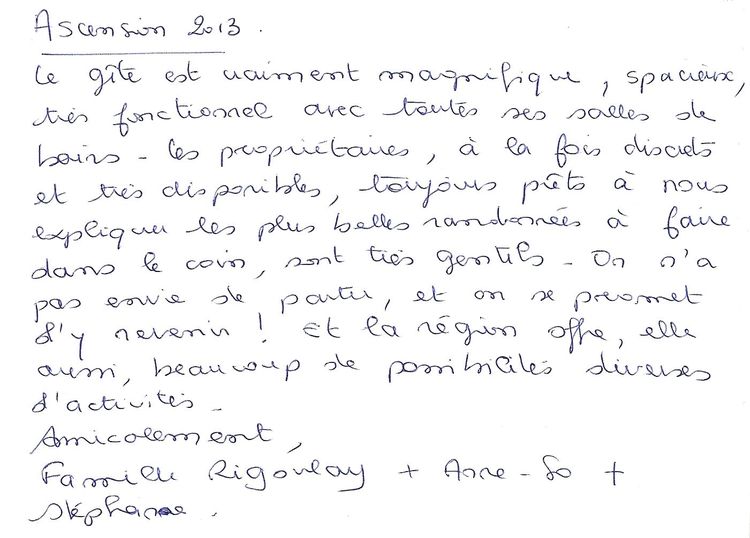 Ascension 2013.
Le gîte est vraiment magnifique, spacieux,
très fonctionnel avec toutes ses salles de
bains - les propriétaires, à la fois discrets
et très disponibles, toujours prêts à nous
expliquer les plus belles randonnées à faire
dans le coin, sont très gentils - On n'a
pas envie de partir, et on se promet
d'y revenir ! Et la région offre, elle
aussi, beaucoup de possibilités diverses
d'activités -
Amicalement,
Famille + Anne-So +
Stéphane.